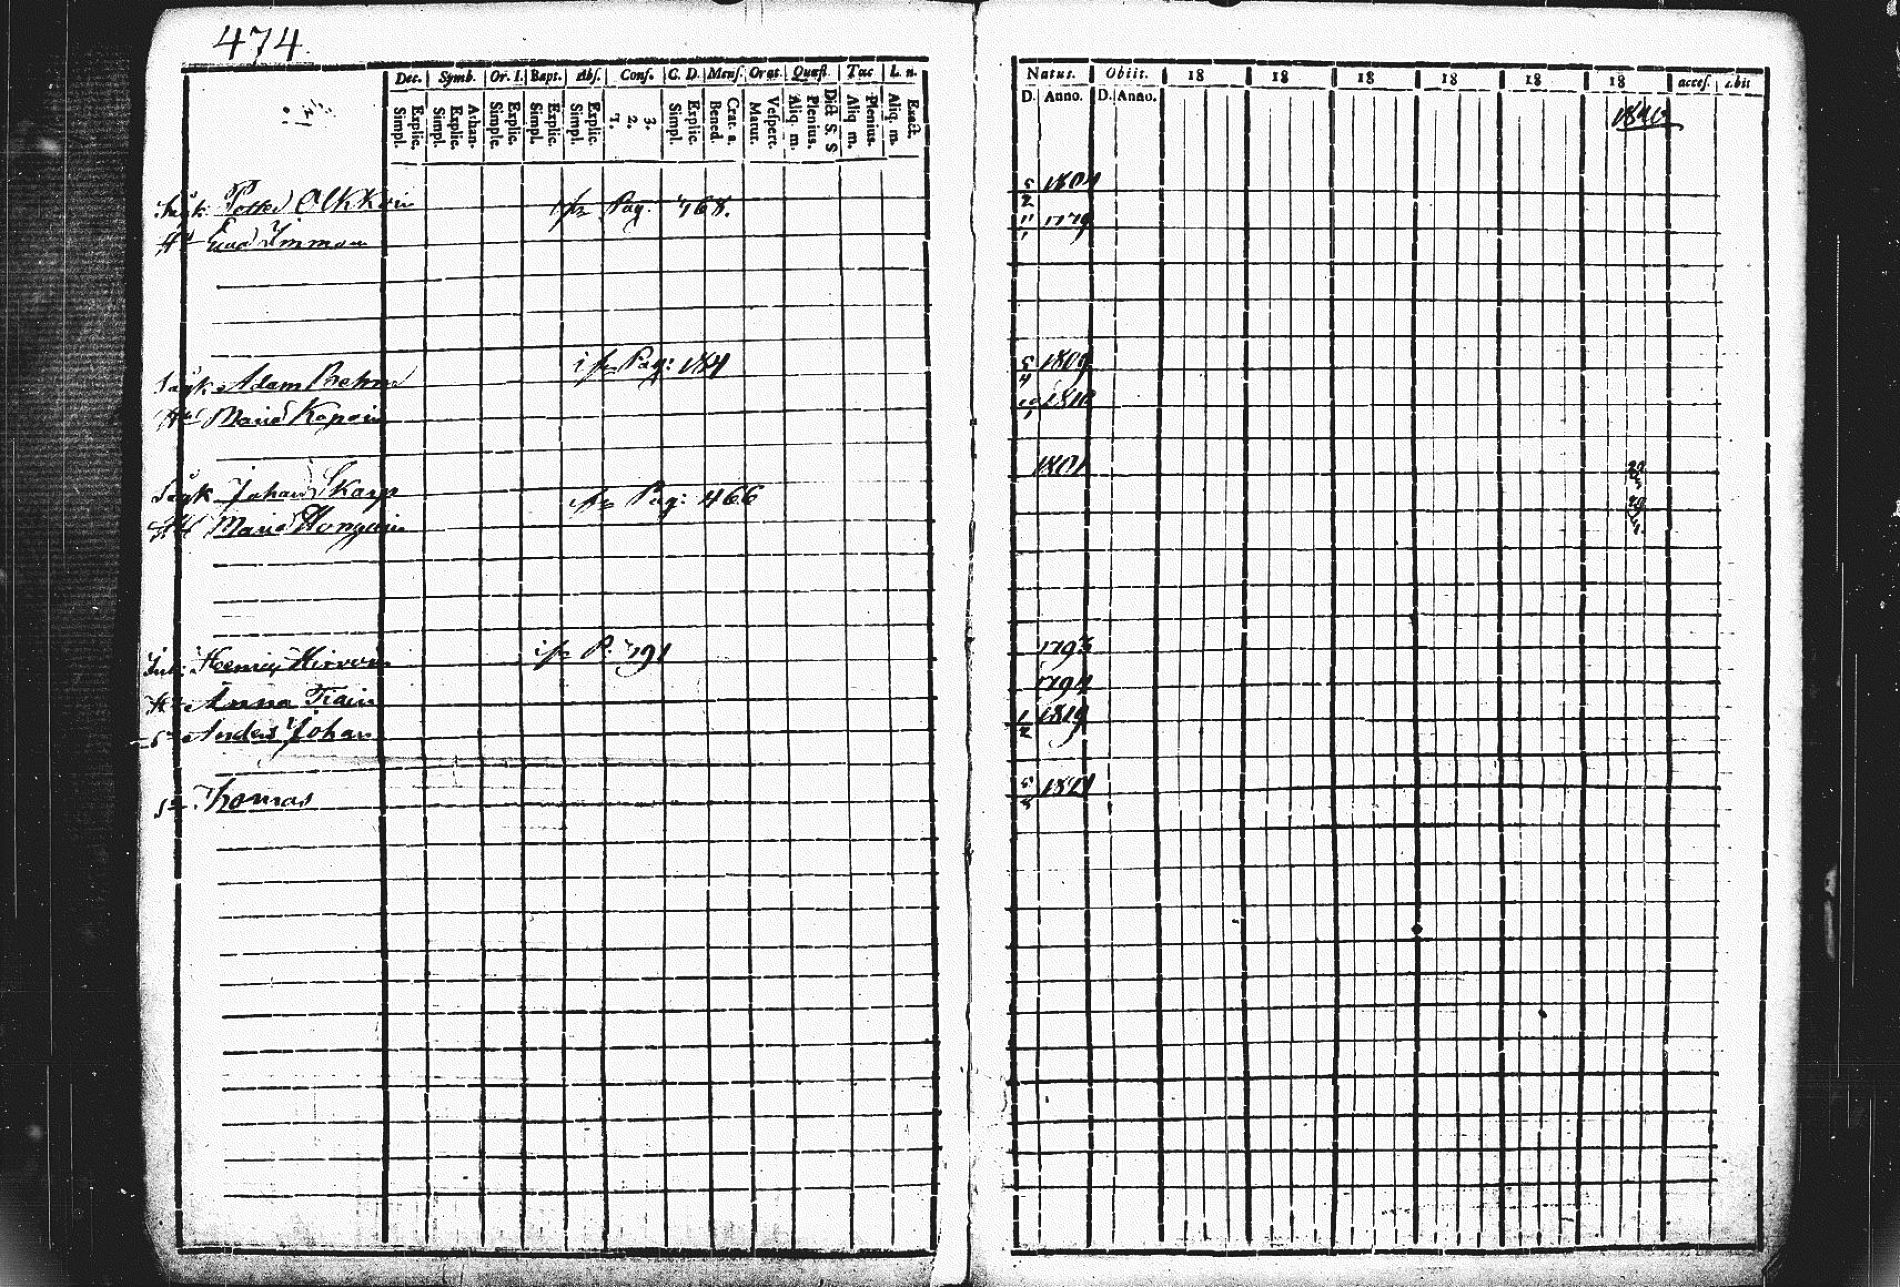 474
Dec. Symb. Or. I. Bapt. Abs. Conf. C. D. Mens. Orat. Quæst. Tac L. n.
Simpl. Explic. Simpl. Explic. Athan. Simple. Explic. Simpl. Explic. Simpl. Explic. 1. 2. 3. Simpl. Explic. Bened. Grat. a. Matut. Vespert. Aliq. m. Plenius. Dict. S. S Aliq. m. Plenius. Aliq. m. Exact.
Natus. Obiit. 18 18 18 18 18 18 acces. abit
D. Anno. D. Anno.
Petter Olkkoin Pag. 468. 5/2 1804
Hu Eva Immon 11/1 1779
Adam Brehm Pag: 184 5/4 1809
Hu Maria Kopoin 1810
Johan Karp Pag: 466 1801
Hu Maria
Henric Hirvoin P. 191 1793
Hu Anna Tiain 1794
Sn Anders Johan 1/2 1819
Sn Thomas 1824